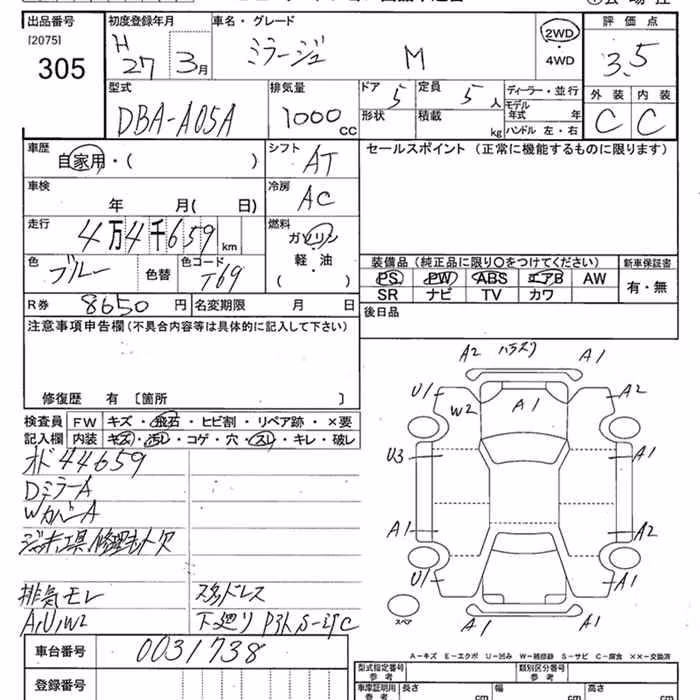 出品番号
[2075]
305
初度登録年月
H 27 3月
車名・グレード
ミラージュ M
2WD
・
4WD
評価点
3.5
外装 内装
C C
型式
DBA-A05A
排気量
1000 CC
ドア
5
定員
5 人
形状
積載
kg
ディーラー・並行
モデル
年式 年
ハンドル 左・右
車歴
自家用・( )
シフト
AT
セールスポイント (正常に機能するものに限ります)
車検
年 月( 日)
冷房
AC
走行
4万4千659 km
燃料
ガソリン
軽・油
( )
色
ブルー
色替
色コード
T69
装備品 (純正品に限り○をつけてください)
PS PW ABS エアB AW
SR ナビ TV カワ
新車保証書
有・無
R券 8650 円
名変期限 月 日
後日品
注意事項申告欄(不具合内容等は具体的に記入して下さい)
修復歴 有 〔箇所 〕
検査員
記入欄
FW キズ・飛石・ヒビ割・リペア跡・×要
内装 キズ・汚レ・コゲ・穴・スレ・キレ・破レ
オド 44659
DミラーA
WカバーA
ジャッキ工具修理キット欠
排気モレ
A,U,W2
スタッドレス
下廻り
A2 ハラスリ A1
U1 W2 A1 A2
U3 A1
A1 A2
U1 A1
スペア
A1 A1
A-キズ E-エクボ U-凹み W-補修跡 S-サビ C-腐食 ××-交換済
車台番号
0031738
登録番号
型式指定番号
類別区分番号
車庫証明用
参考
長さ cm
幅 cm
高さ cm